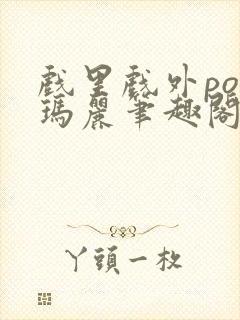 戲里戲外po
瑪麗筆趣閣
丫頭一枚